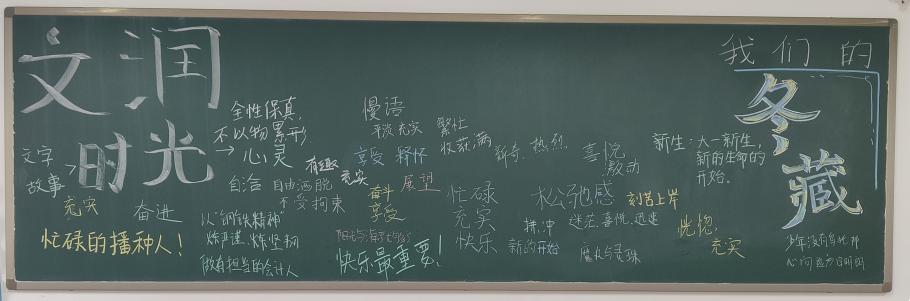 文润
时光
我们的
冬
藏
全性保真，
不以物累形
→心灵
文字
故事→
慢语
平淡 充实
繁忙
收获满
新奇、热烈、
喜悦
激动
新生：大一新生，
新的生命的
开始。
有趣
充实
享受 释怀
自洽 自由洒脱
不受拘束
奋斗
享受
展望
忙碌
充实
快乐
松弛感
刻苦上岸
充实
奋进
忙碌的播种人！
以“钢铁精神”
炼严谨、炼坚韧
做有担当的会计人
快乐最重要！
拼、冲
新的开始
迷茫、喜悦、迅速
魔丸与灵珠
恍惚、
充实